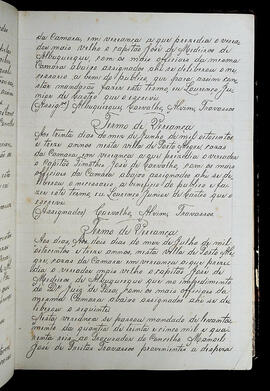 da Camara, em vereança a que presidia o verea-
dor mais velho o capitão José de Medeiros de
Albuquerque, com os mais officiais da mesma
Camara abaixo assignados ahi se deliberou o ne-
cessario a bem do publico, que para assim cons-
tar mandarão fazer este termo, eu Lourenço Ju-
nior de Castro que o escrevi
(Assigns.) Albuquerque, Carvalho, Alvim, Travassos
Termo de Vereança
Aos trinta dias do mez de Junho, de mil oitocentos
e treze annos, nesta villa de Porto Alegre, casas
da Camara, em vereança a que presidia o vereador
o Capitão José de Carvalho, com os mais
officiais da Camara abaixo assignados ahi se de-
liberou o necessario a beneficio do publico e fiz
este termo, eu Lourenço Junior de Castro que o
escrevi
(Assignados) Carvalho, Alvim, Travassos
Termo de Vereança
Aos dias, dos mez de Julho de mil
oitocentos e treze annos, nesta Villa de Porto Ale-
gre, casas da Camara em vereança a que presi-
dia o vereador mais velho o capitão José de
Medeiros de Albuquerque que no impedimento
do Dr. Juiz de Fora, com os mais officiais da
mesma Camara abaixo assignados ahi se de-
liberou o seguinte
Nesta vereança se passou mandado de levanta-
mento da quantia de trinta e cinco mil e quatro
centa reis ao Conselho Manoel
José de Freitas Travassos provenientes a despeza